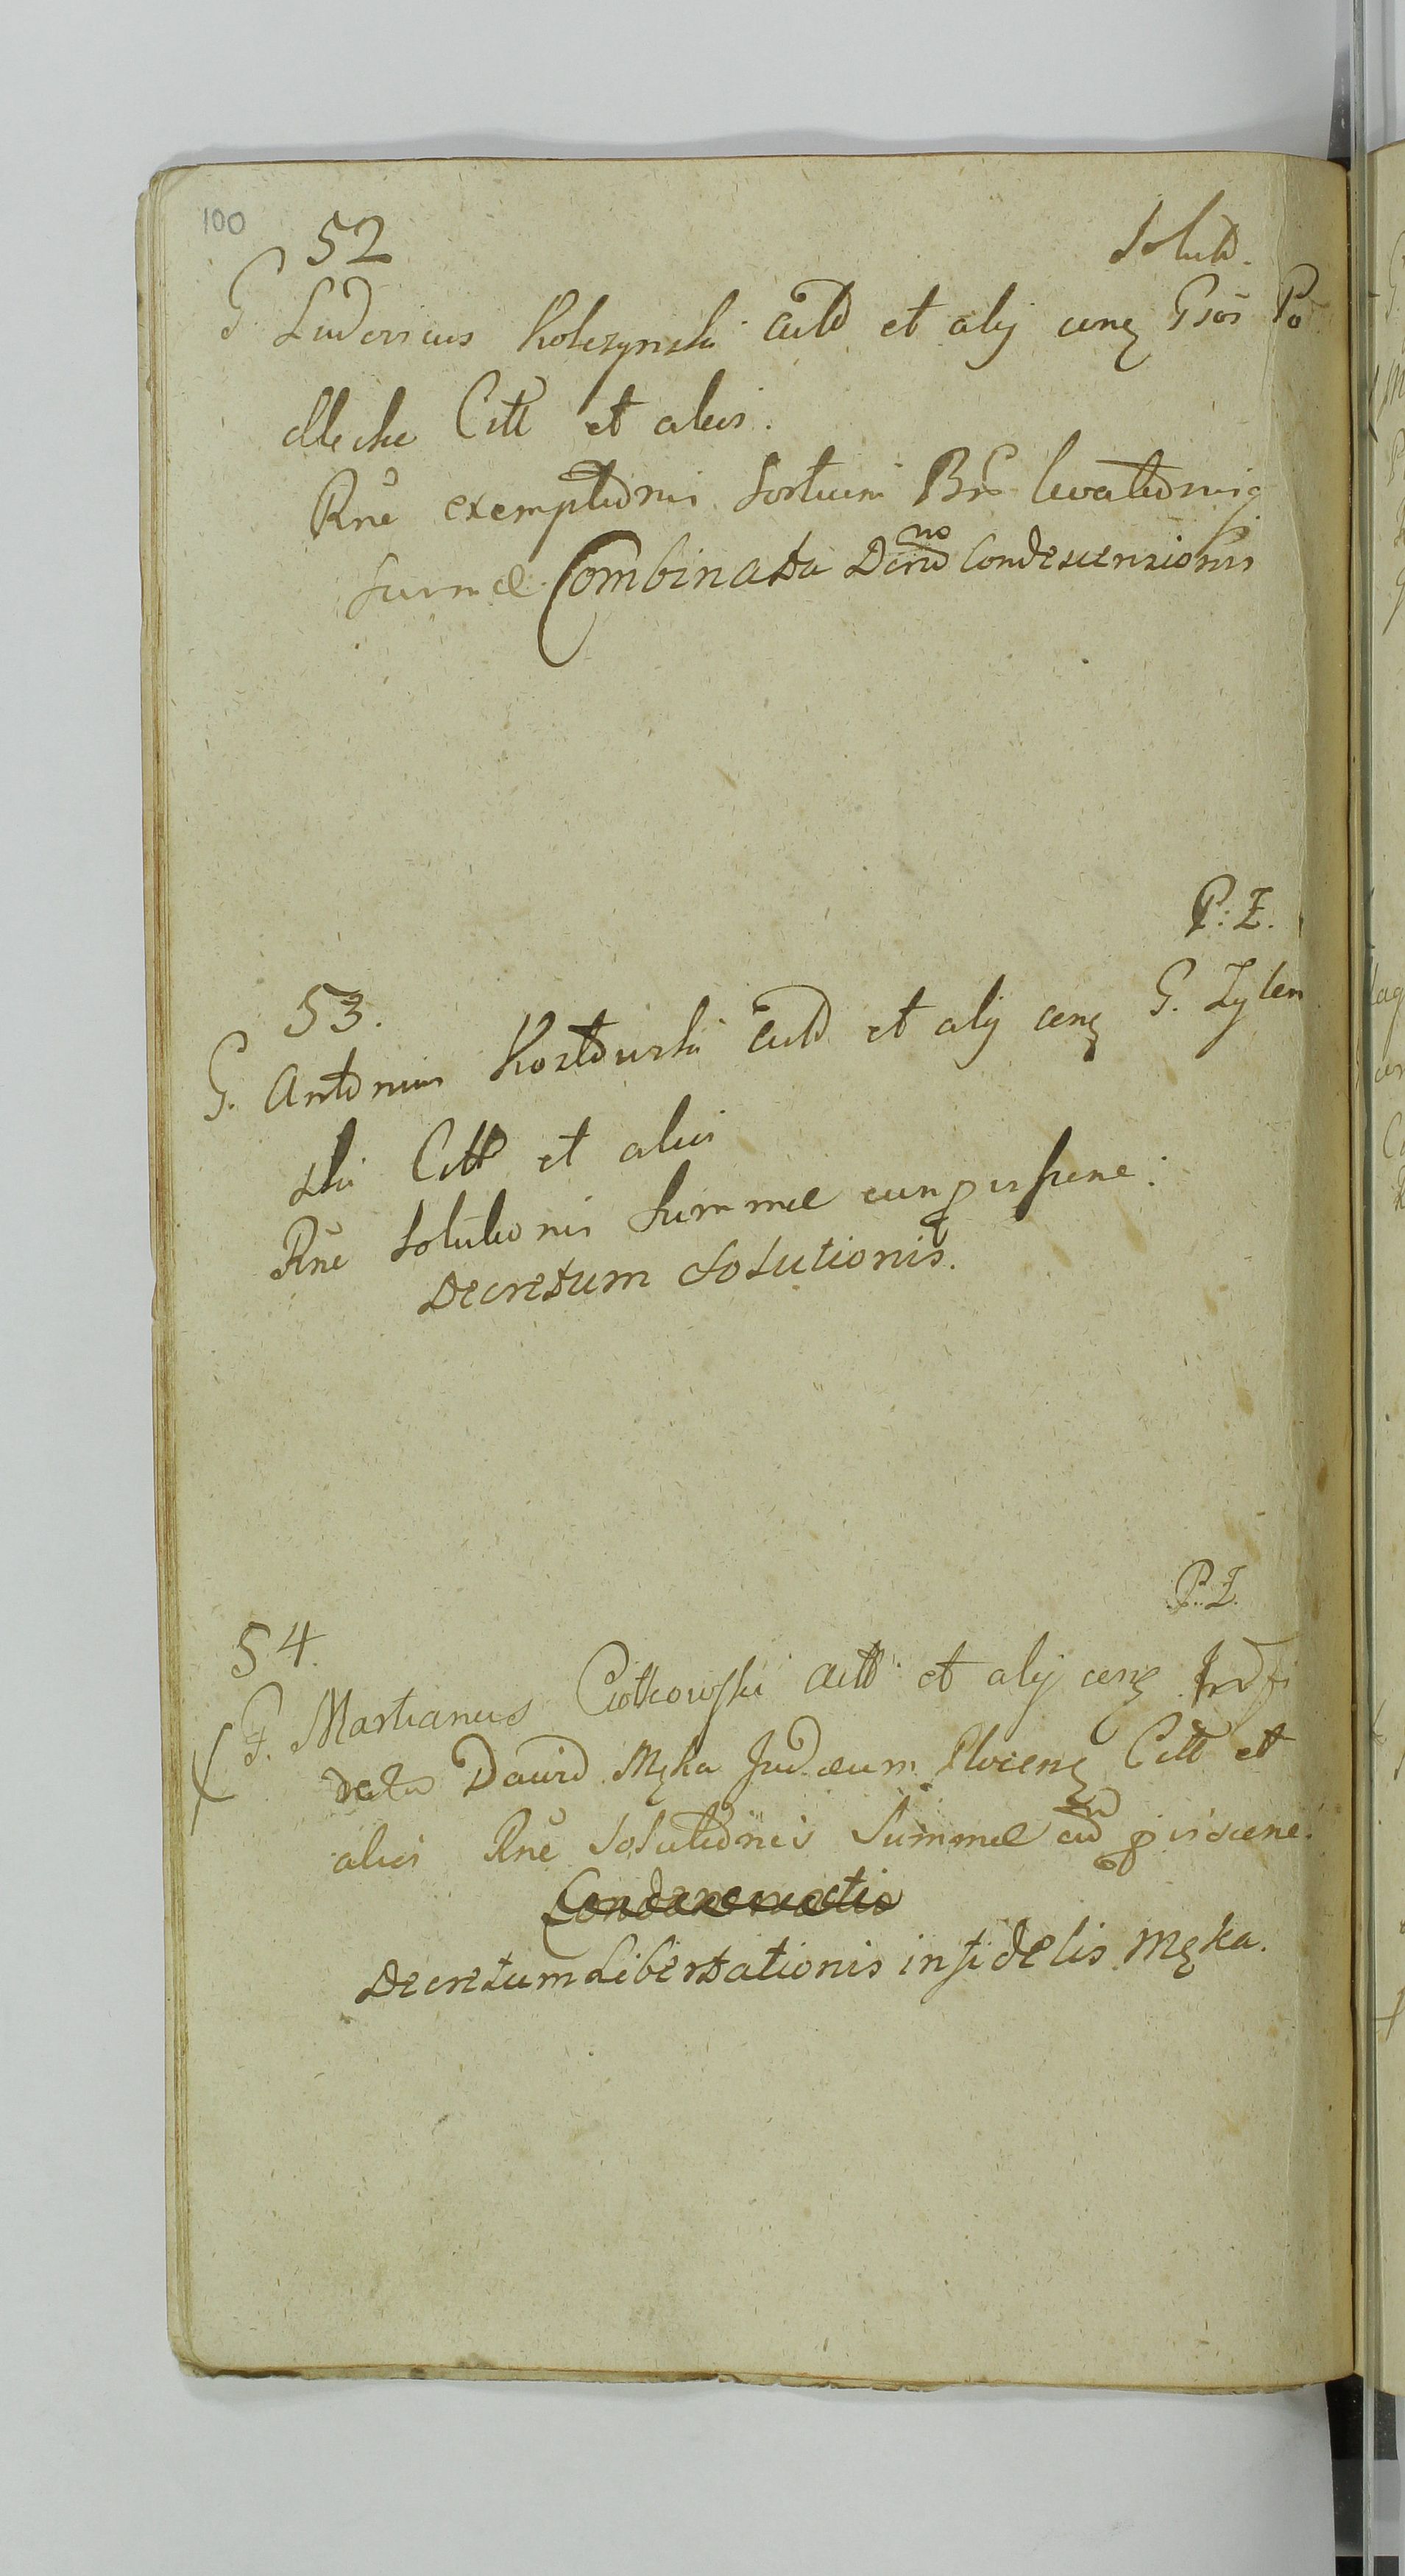 100
52
Solut.
G. Ludovicus Kolczynski Actt et alij cum Gsos Po
dleskie Citt et alios.
Rne exemptionis Sortium Bns levationisq
Summae. Combinata Dcno no Condescensionis
P: Z.
53.
G. Antonius Kostowski Actt et alij cum G. Zylen
ski Citt et alios
Rne Solutionis Summae
Decretum Solutionis.
P: Z.
54.
G. Martianus Ciolkowski Actt et alij cum Infi
delem David Męka Judaeum Plocens Citt et
alios Rne Solutionis Summae
Condemnatio
Decretum Libertationis infidelis Męka.